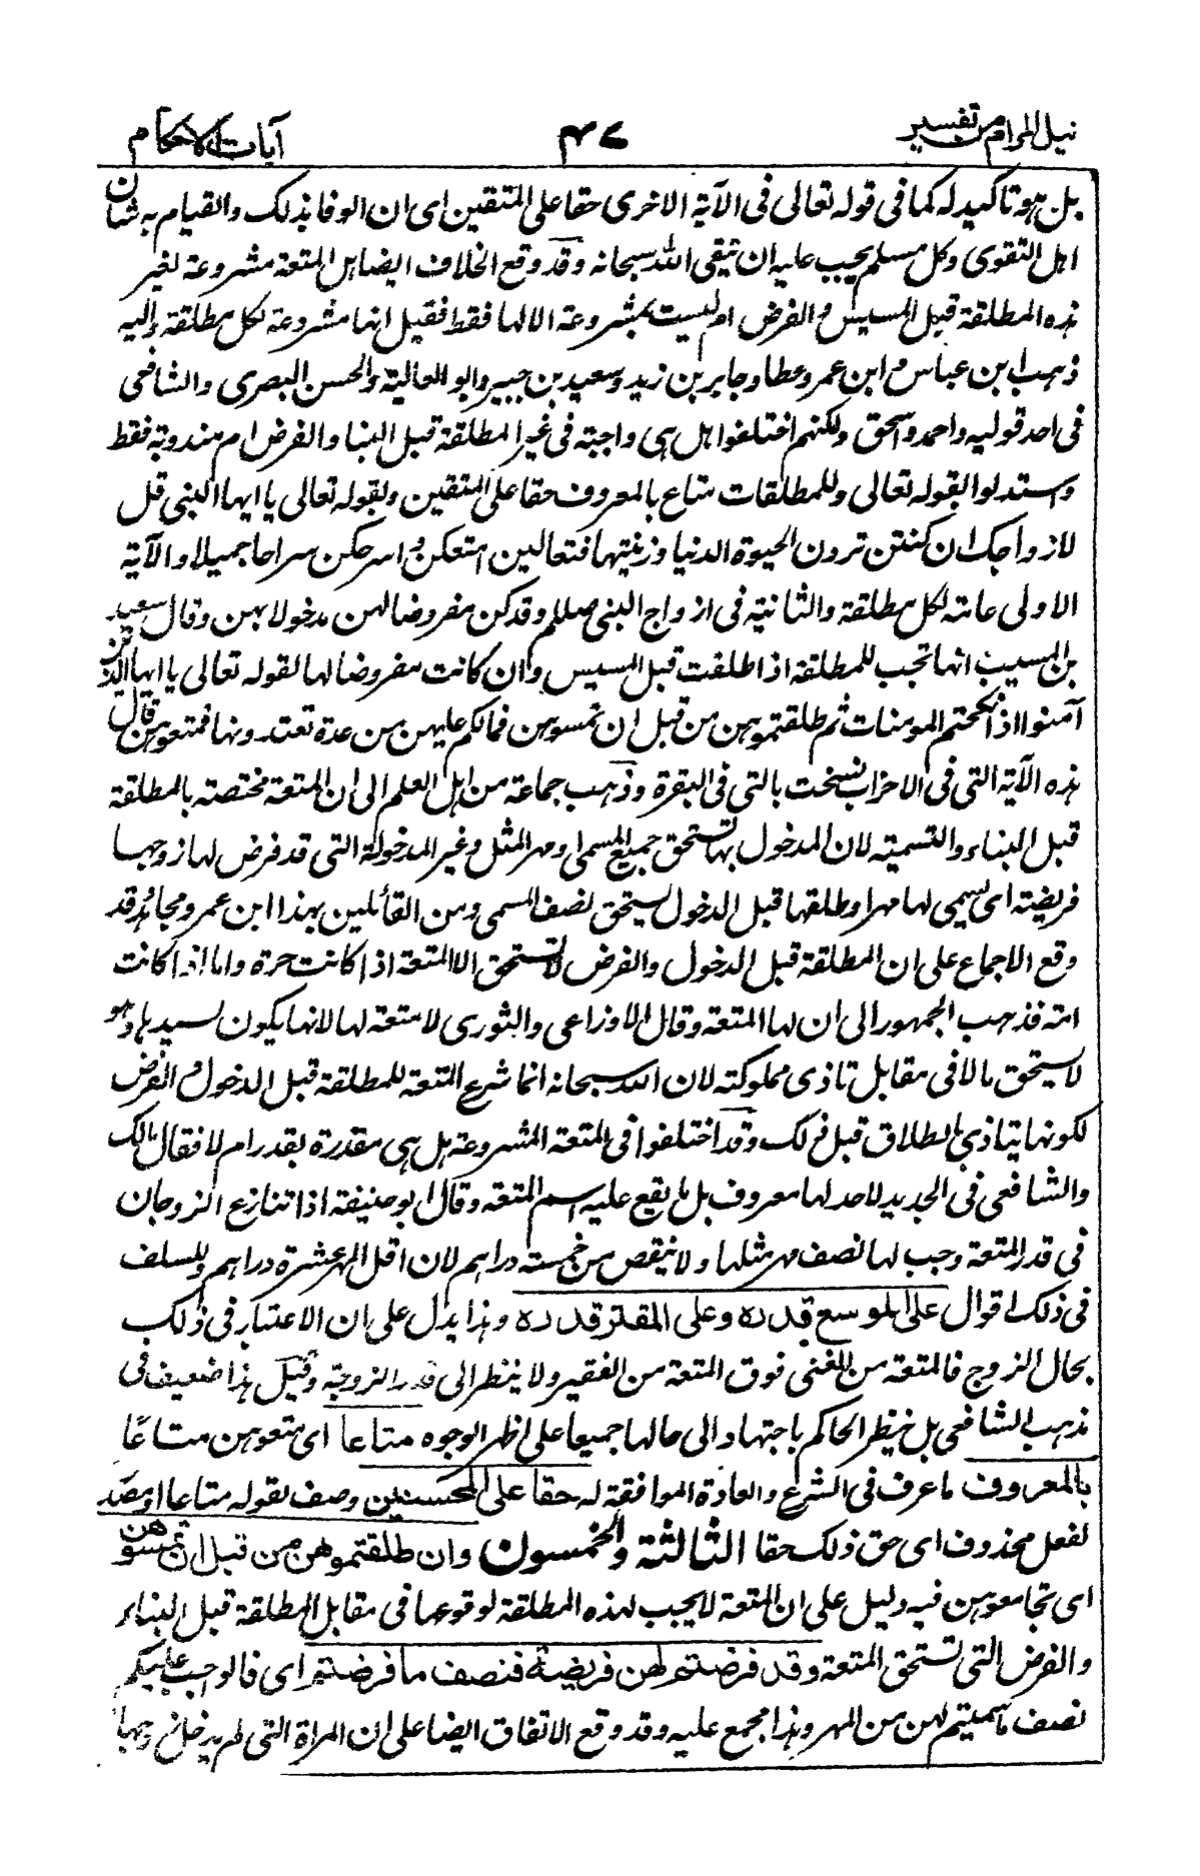 نيل المرام من تفسير
٤٧
آيات الاحكام
بل هو تاكيد له كما فى قوله تعالى فى الآية الاخرى حقا على المتقين اى ان الوفا بذلك والقيام به شان
اهل التقوى وكل مسلم يجب عليه ان يتقى الله سبحانه وقد وقع الخلاف ايضا هل المتعة مشروعة لغير
هذه المطلقة قبل المسيس والفرض ام ليست بمشروعة الا لها فقط فقيل انها مشروعة لكل مطلقة واليه
ذهب ابن عباس وابن عمر وعطا وجابر بن زيد وسعيد بن جبير وابو العالية والحسن البصرى والشافعى
فى احد قوليه واحمد واسحق ولكنهم اختلفوا هل هى واجبة فى غير المطلقة قبل البنا والفرض ام مندوبة فقط
واستدلوا بقوله تعالى وللمطلقات متاع بالمعروف حقا على المتقين وبقوله تعالى يا ايها النبى قل
لازواجك ان كنتن تردن الحيوة الدنيا وزينتها فتعالين امتعكن واسرحكن سراحا جميلا والآية
الاولى عامة لكل مطلقة والثانية فى ازواج النبى صللم وقد كن مفروضا لهن مدخولا بهن وقال سعيد
بن المسيب انها تجب للمطلقة اذا طلقت قبل المسيس وان كانت مفروضا لها لقوله تعالى يا ايها الذين
آمنوا اذا نكحتم المومنات ثم طلقتموهن من قبل ان تمسوهن فمالكم عليهن من عدة تعتدونها فمتعوهن قال
هذه الآية التى فى الاحزاب نسخت بالتى فى البقرة وذهب جماعة من اهل العلم الى ان المتعة مختصة بالمطلقة
قبل البناء والتسمية لان المدخول بها تستحق جميع المسمى او مهر المثل وغير المدخولة التى قد فرض لها زوجها
فريضة اى سمى لها مهرا وطلقها قبل الدخول يستحق نصف المسمى ومن القائلين بهذا ابن عمر ومجاهد وقد
وقع الاجماع على ان المطلقة قبل الدخول والفرض لا تستحق الا المتعة اذا كانت حرة واما اذا كانت
امة فذهب الجمهور الى ان لها المتعة وقال الاوزاعى والثورى لا متعة لها لانها يكون لسيدها وهو
لا يستحق مالا فى مقابل تاذى مملوكته لان الله سبحانه انما شرع المتعة للمطلقة قبل الدخول والفرض
لكونها تتاذى بالطلاق قبل ذلك وقد اختلفوا فى المتعة المشروعة هل هى مقدرة بقدر ام لا فقال مالك
والشافعى فى الجديد لا حد لها معروف بل ما يقع عليه اسم المتعة وقال ابو حنيفة اذا تنازع الزوجان
فى قدر المتعة وجب لها نصف مهر مثلها ولا ينقص من خمسة دراهم لان اقل المهر عشرة دراهم وللسلف
فى ذلك اقوال على الموسع قدره وعلى المقتر قدره وهذا يدل على ان الاعتبار فى ذلك
بحال الزوج فالمتعة من الغنى فوق المتعة من الفقير ولا ينظر الى قدر الزوجة وقيل هذا ضعيف فى
مذهب الشافعى بل ينظر الحاكم باجتهاده الى حالهما جميعا على اظهر الوجوه متاعا اى متعوهن متاعًا
بالمعروف ما عرف فى الشرع والعادة الموافقة له حقا على المحسنين وصف لقوله متاعا او مصدر
لفعل محذوف اى حق ذلك حقا الثالثة والخمسون وان طلقتموهن من قبل ان تمسوهن
اى تجامعوهن فيه دليل على ان المتعة لا يجب لهذه المطلقة لوقوعها فى مقابل المطلقة قبل البناء
والفرض التى تستحق المتعة وقد فرضتم لهن فريضة فنصف ما فرضتم اى فالواجب عليكم
نصف ما سميتم لهن من المهر وهذا مجمع عليه وقد وقع الاتفاق ايضا على ان المراة التى لم يدخل زوجها